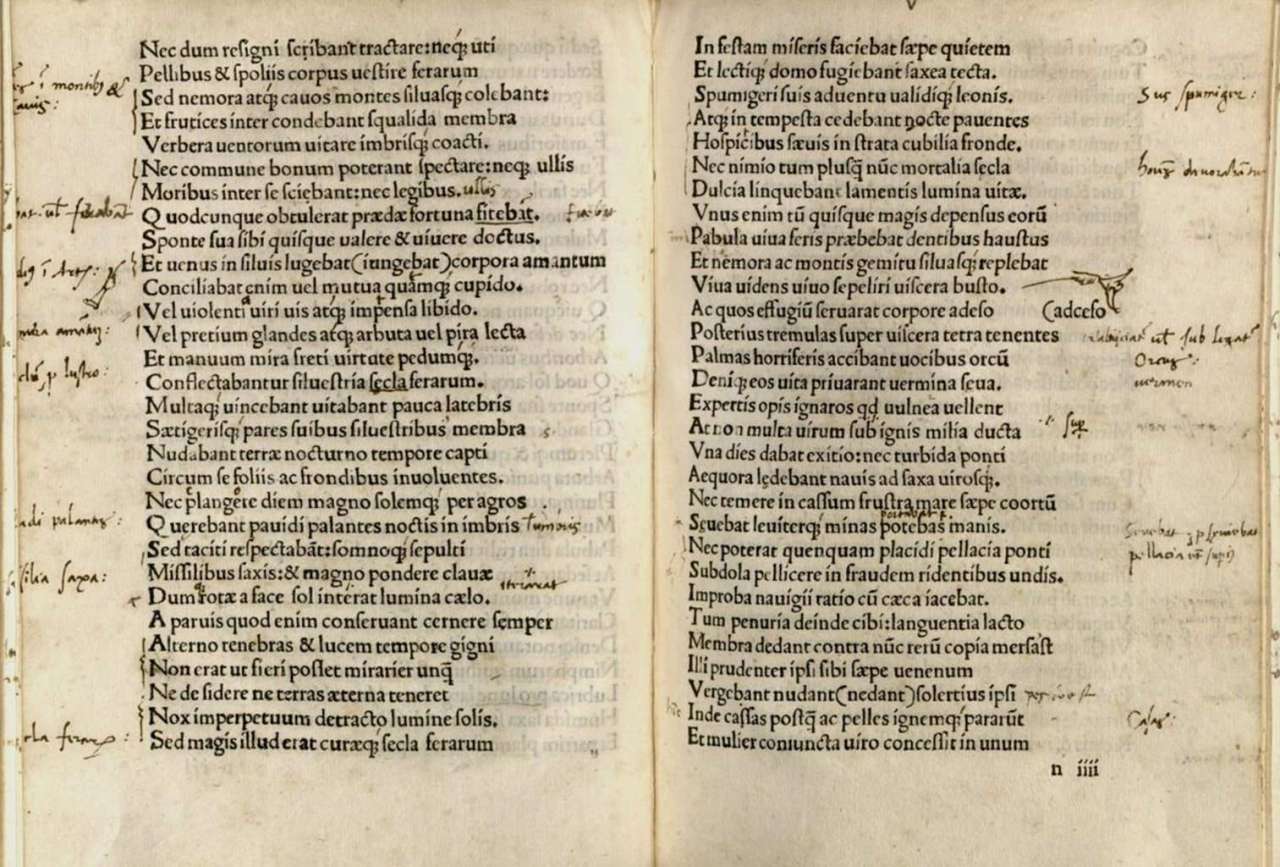 Nec dum resigni scribant tractare: neq; uti
Pellibus & spoliis corpus uestire ferarum
Sed nemora atq; cauos montes siluasq; colebant:
Et frutices inter condebant squalida membra
Verbera uentorum uitare imbrisq; coacti.
Nec commune bonum poterant spectare: neq; ullis
Moribus inter se sciebant: nec legibus. ullis
Quodcunque obtulerat prædæ fortuna sitebat.
Sponte sua sibi quisque ualere & uiuere doctus.
Et uenus in siluis lugebat (iungebat) corpora amantum
Conciliabat enim uel mutua quāmq; cupido.
Vel uiolenti uiri uis atq; impensa libido.
Vel pretium glandes atq; arbuta uel pira lecta
Et manuum mira freti uirtute pedumq;.
Conflectabantur siluestria secla ferarum.
Multaq; uincebant uitabant pauca latebris
Sætigerisq; pares suibus siluestribus membra
Nudabant terræ nocturno tempore capti
Circum se foliis ac frondibus inuoluentes.
Nec plangere diem magno solemq; per agros
Querebant pauidi palantes noctis in imbris
Sed taciti respectabāt: somnoq; sepulti
Missilibus saxis: & magno pondere clauæ
Dum rotæ a face sol interat lumina cælo.
A paruis quod enim conseruant cernere semper
Alterno tenebras & lucem tempore gigni
Non erat ut fieri posset mirarier unq̄
Ne de sidere ne terras æterna teneret
Nox imperpetuum detracto lumine solis.
Sed magis illud erat curæq; secla ferarum
In festam miseris faciebat sæpe quietem
Et lectiq; domo fugiebant saxea tecta.
Spumigeri suis aduentu ualidiq; leonis.
Atq; in tempesta cedebant nocte pauentes
Hospicibus sæuis in strata cubilia fronde.
Nec nimio tum plusq̄ nūc mortalia secla
Dulcia linquebant lamentis lumina uitæ.
Vnus enim tū quisque magis depensus eorū
Pabula uiua feris præbebat dentibus haustus
Et nemora ac montis gemitu siluasq; replebat
Viua uidens uiuo sepeliri uiscera busto.
Ac quos effugiū seruarat corpore adeso (adceso
Posterius tremulas super uiscera tetra tenentes
Palmas horriferis accibant uocibus orcū
Deniq; eos uita priuarant uermina seua.
Expertis opis ignaros qd uulnea uellent
At non multa uirum sub ignis milia ducta
Vna dies dabat exitio: nec turbida ponti
Aequora lędebant nauis ad saxa uirosq;.
Nec temere in cassum frustra mare sæpe coortū
Seuebat leuiterq; minas potebas manis.
Nec poterat quenquam placidi pellacia ponti
Subdola pellicere in fraudem ridentibus undis.
Improba nauigii ratio cū cæca iacebat.
Tum penuria deinde cibi: languentia lacto
Membra dedant contra nūc rerū copia mersast
Illi prudenter ipsi sibi sæpe uenenum
Vergebant nudant (nedant) solertius ipsi
Inde cassas postq̄ ac pelles ignemq; pararūt
Et mulier coniuncta uiro concessit in unum
n iiii
Sus spumiger:
Orcus: